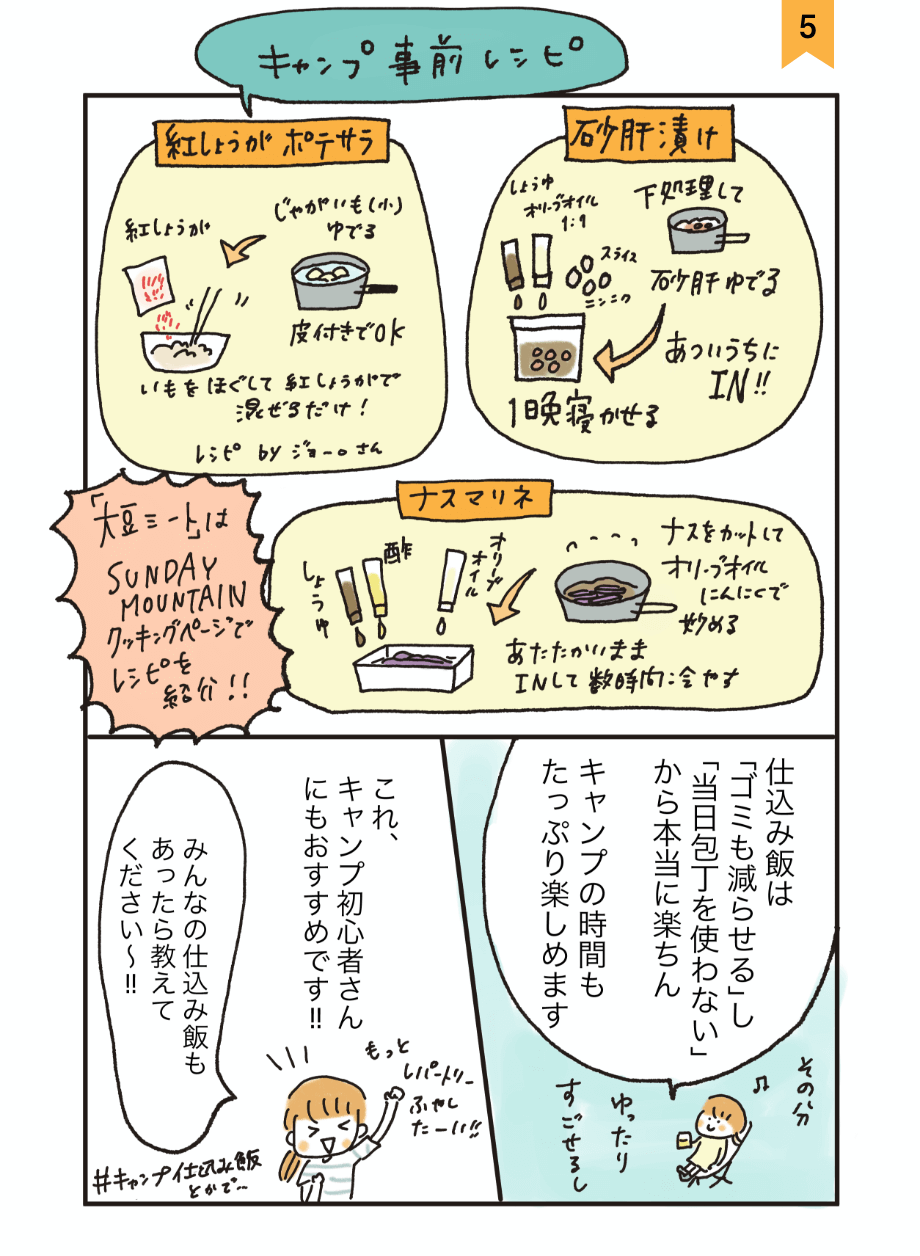 5
キャンプ事前レシピ
紅しょうがポテサラ
紅しょうが
じゃがいも(小)
ゆでる
皮付きでOK
いもをほぐして紅しょうがで
混ぜるだけ!
レシピ by ジョーさん
砂肝漬け
しょうゆ
オリーブオイル
1:1
スライス
ニンニク
下処理して
砂肝ゆでる
あついうちに
IN!!
1晩寝かせる
「大豆ミート」は
SUNDAY
MOUNTAIN
クッキングページで
レシピを
紹介!!
ナスマリネ
しょうゆ
酢
オリーブ
オイル
ナスをカットして
オリーブオイル
にんにくで
炒める
あたたかいまま
INして数時間冷やす
仕込み飯は
「ゴミも減らせる」し
「当日包丁を使わない」
から本当に楽ちん
キャンプの時間も
たっぷり楽しめます
その分
ゆったり
すごせるし
これ、
キャンプ初心者さん
にもおすすめです!!
みんなの仕込み飯も
あったら教えて
ください〜!!
もっと
レパートリー
ふやし
たーい!!
#キャンプ仕込み飯
とかで…